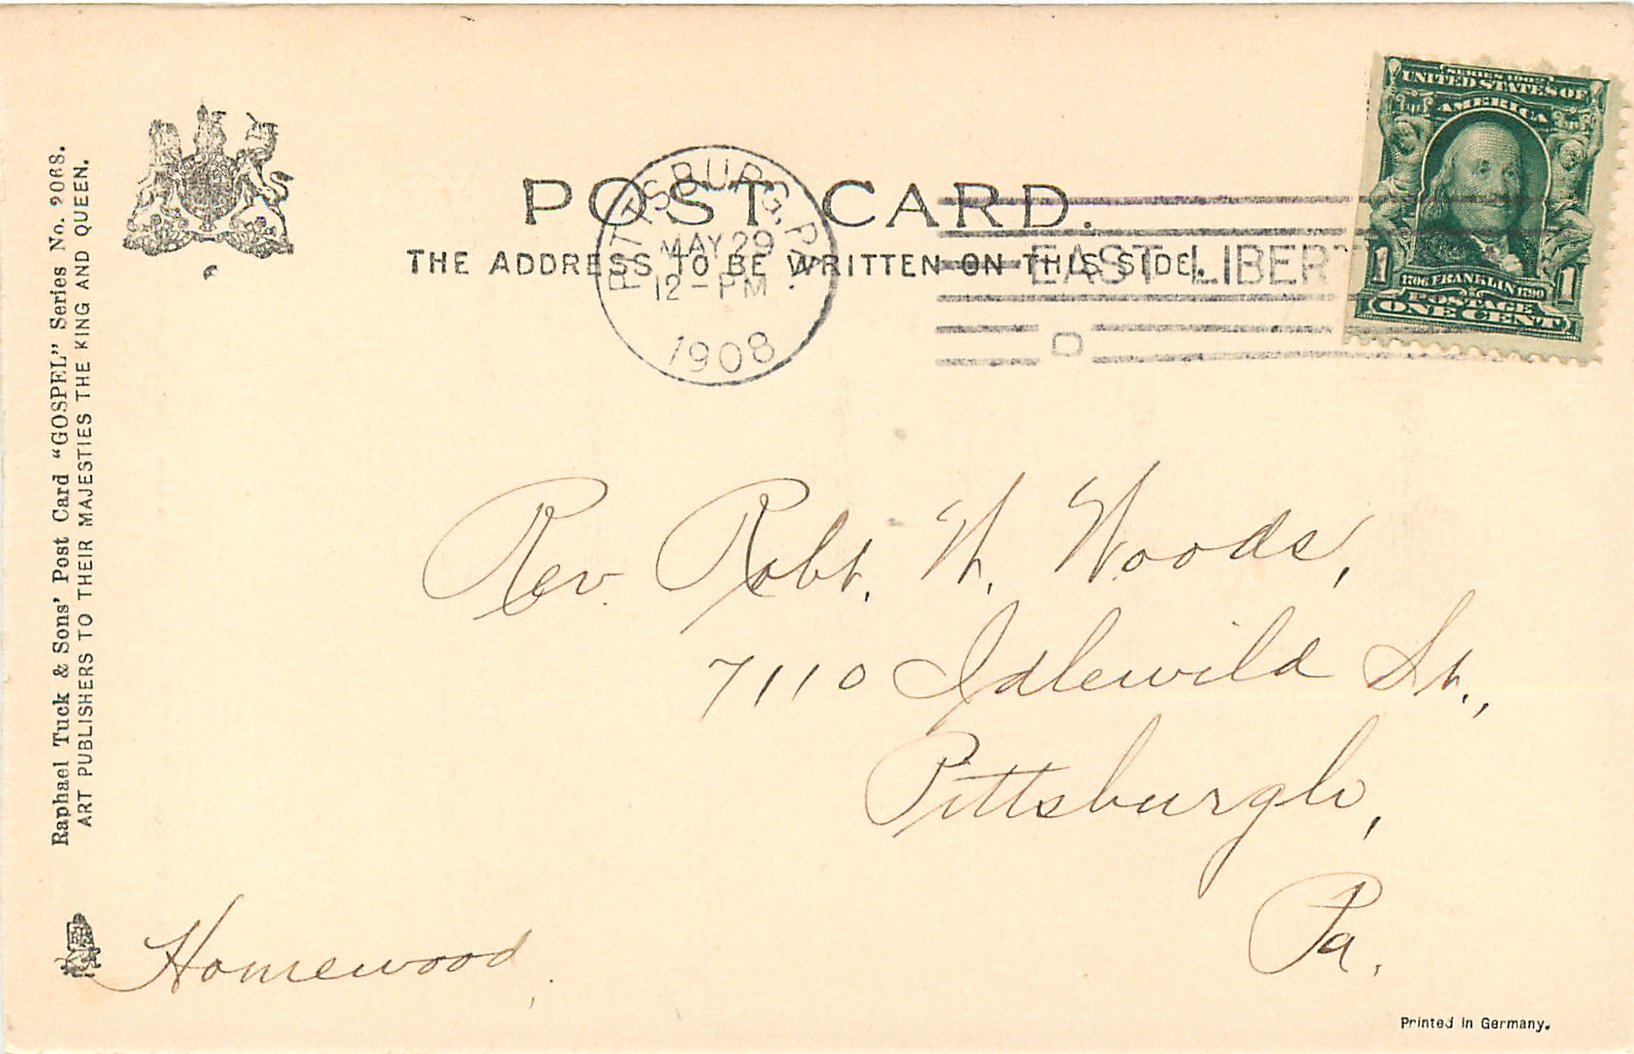 Raphael Tuck & Sons' Post Card "GOSPEL" Series No. 9068.
ART PUBLISHERS TO THEIR MAJESTIES THE KING AND QUEEN.
POST CARD.
THE ADDRESS TO BE WRITTEN ON THIS SIDE.
PITTSBURG, PA.
MAY 29
12-PM
1908
EAST LIBERT
SERIES 1902
UNITED STATES OF
AMERICA
1706 FRANKLIN 1790
1 POSTAGE 1
ONE CENT
Rev. Robt. W. Woods,
7110 Idlewild St.,
Pittsburgh,
Pa.
Homewood.
Printed in Germany.